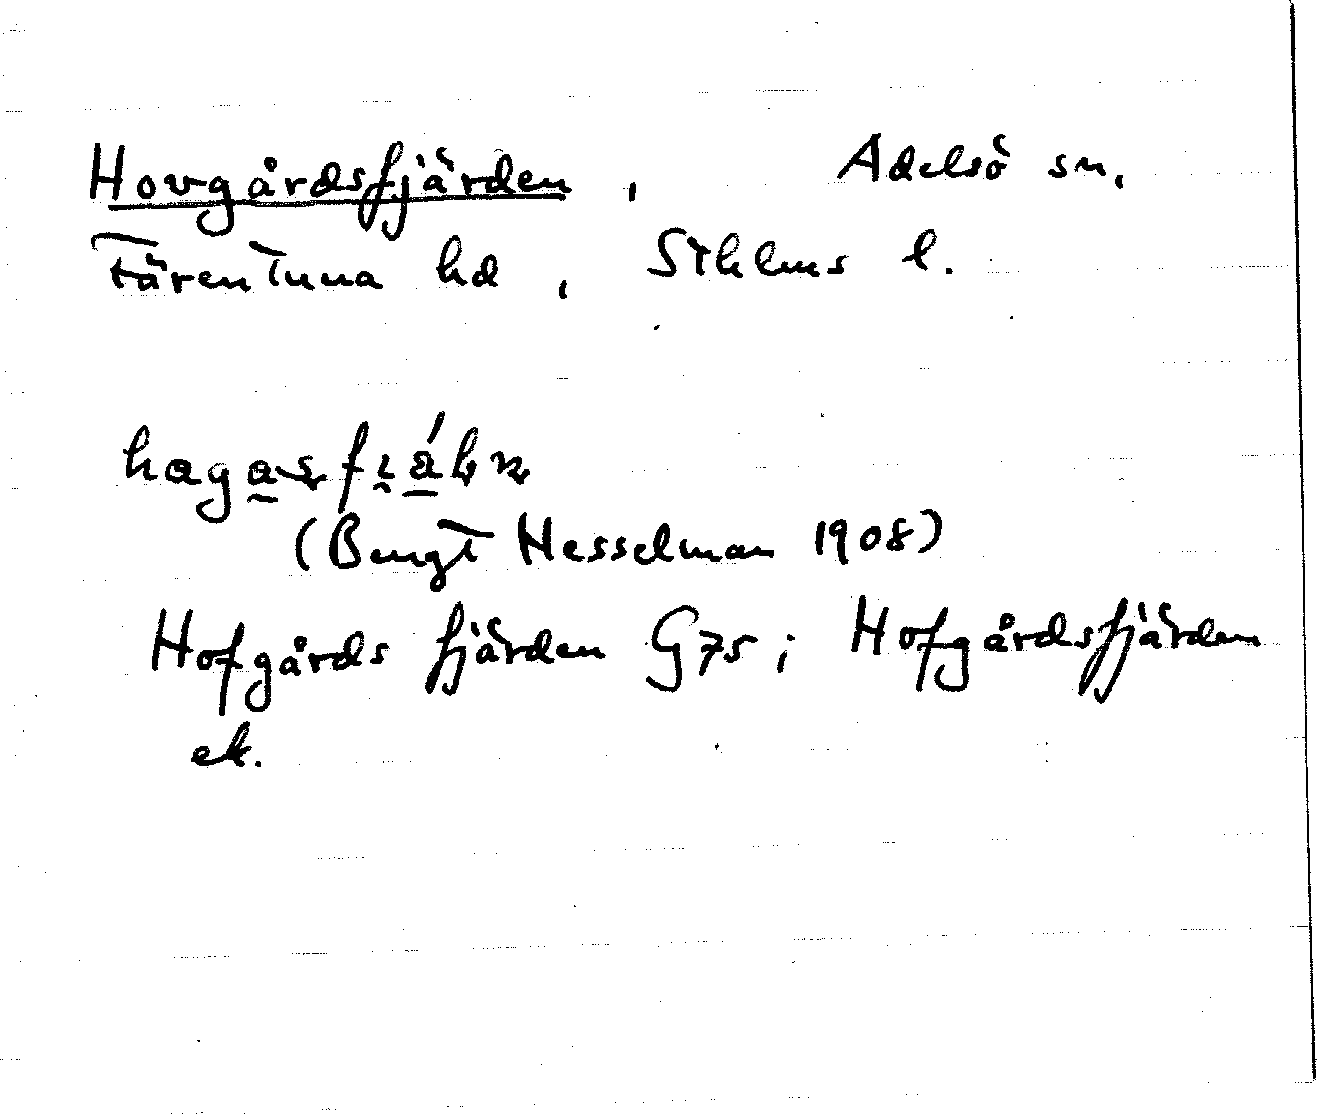 Hovgårdsfjärden, Adelsö sn,
Färentuna hd, Sthlms l.
(Bengt Hesselman 1908)
Hofgårds fjärden G75; Hofgårdsfjärden
ek.